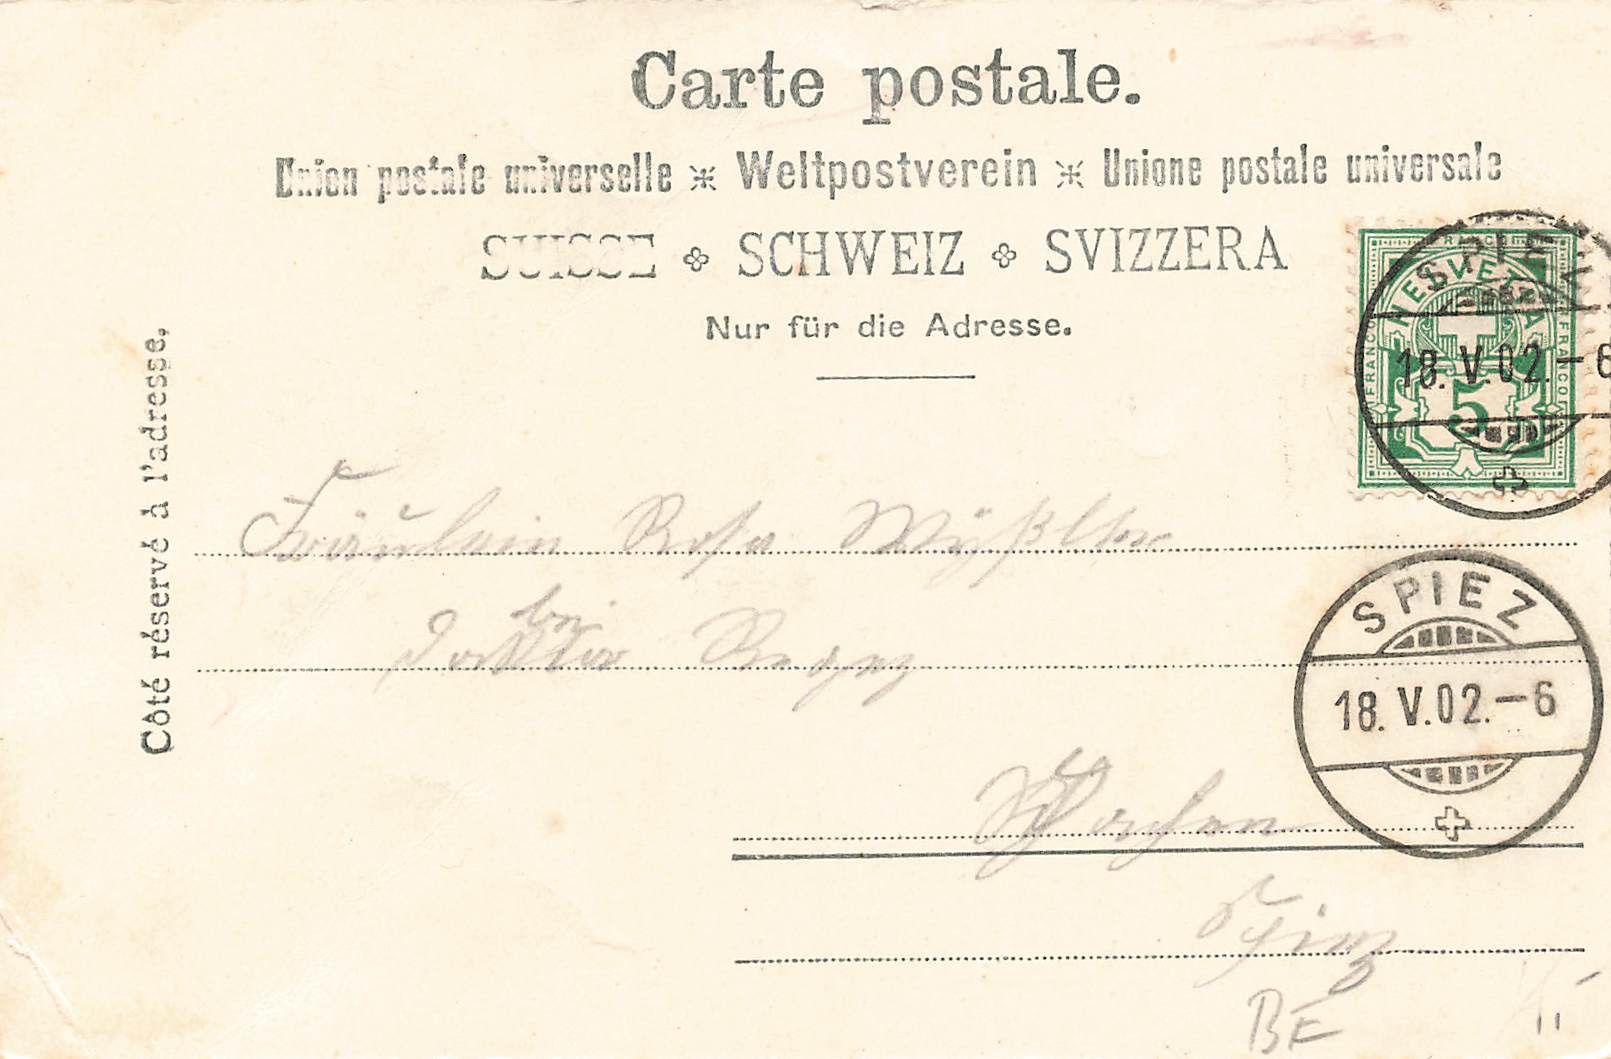 Carte postale.
Union postale universelle ⁎ Weltpostverein ⁎ Unione postale universale
SUISSE ✣ SCHWEIZ ✣ SVIZZERA
Nur für die Adresse.
Côté réservé à l'adresse.
FRANCO
HELVETIA
FRANCO
5
SPIEZ
18. V. 02. – 6
Fräulein Rosa
bei
SPIEZ
18. V. 02. – 6
Spiez
BE